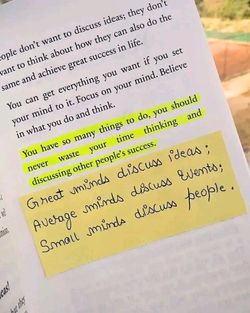 ople don't want to discuss ideas; they don't
want to think about how they can also do the
same and achieve great success in life.
You can get everything you want if you set
your mind to it. Focus on your mind. Believe
in what you do and think.
You have so many things to do, you should
never waste your time thinking and
discussing other people's success.
Great minds discuss ideas;
Average minds discuss Events;
Small minds discuss people.